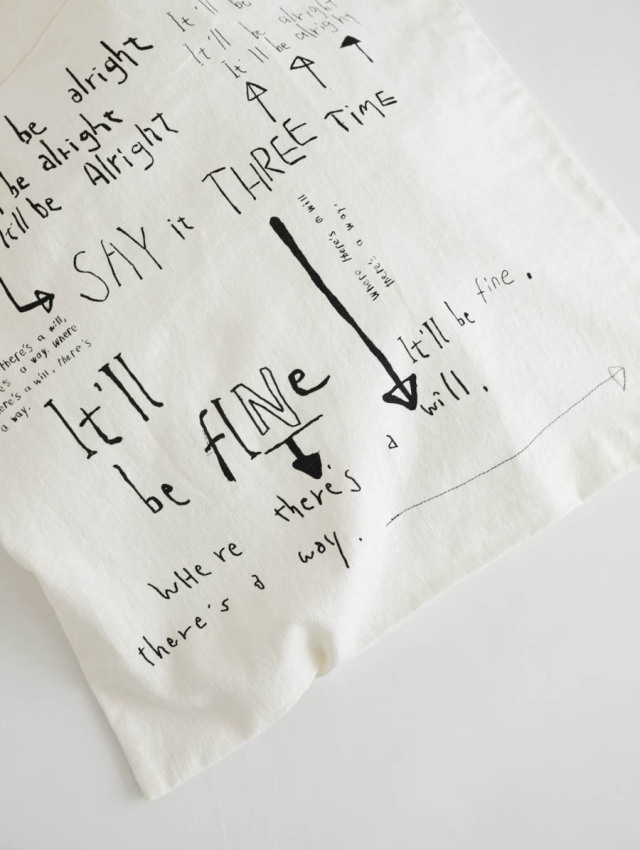 It'll be
It'll be alright
It'll be alright
be alright
be alright
It'll be Alright
SAY it THREE TIME
where there's a will
there's a way.
there's a will,
a way. where
there's a will, there's
a way.
It'll be fine.
It'll
be fINe
where there's a will.
there's a way.